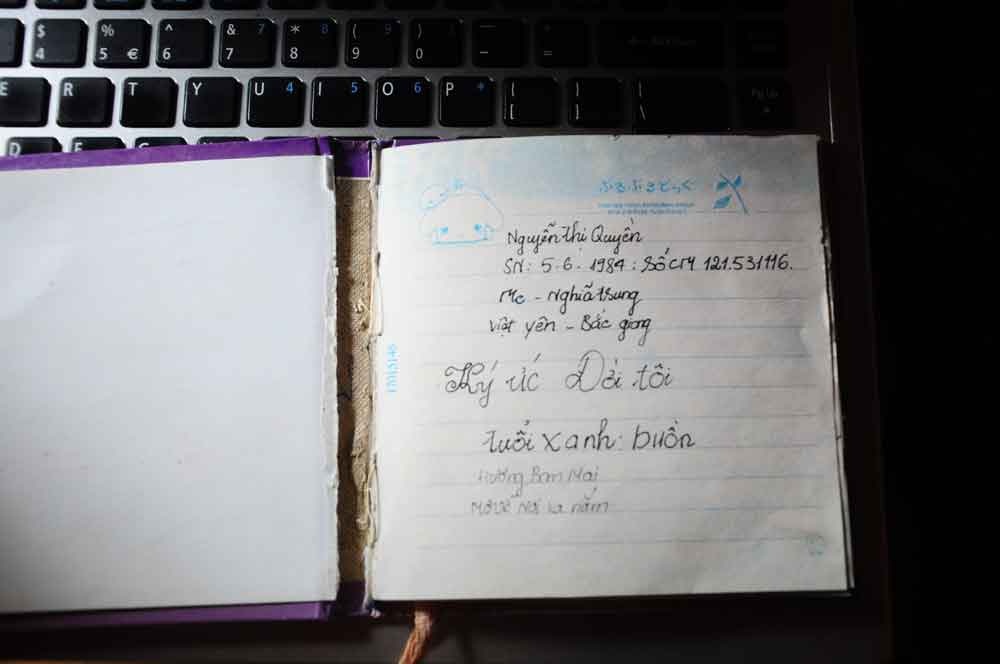 $ % ^ & 7 * 8 ( 9 ) _ +
4 5 € 6 7 8 9 0 - =
E R T Y U 4 I 5 O 6 P * { [ } ] | \ Pg Up
ぷるぷるどっぐ
Nguyễn Thị Quyền
SN: 5-6-1984: Số CM 121.531116.
Mc - Nghĩa trung
Việt yên - Bắc giang
Ký ức Đời tôi
tuổi xanh: buồn
Hương Ban Mai
Mơ về nơi xa nắm
17015146